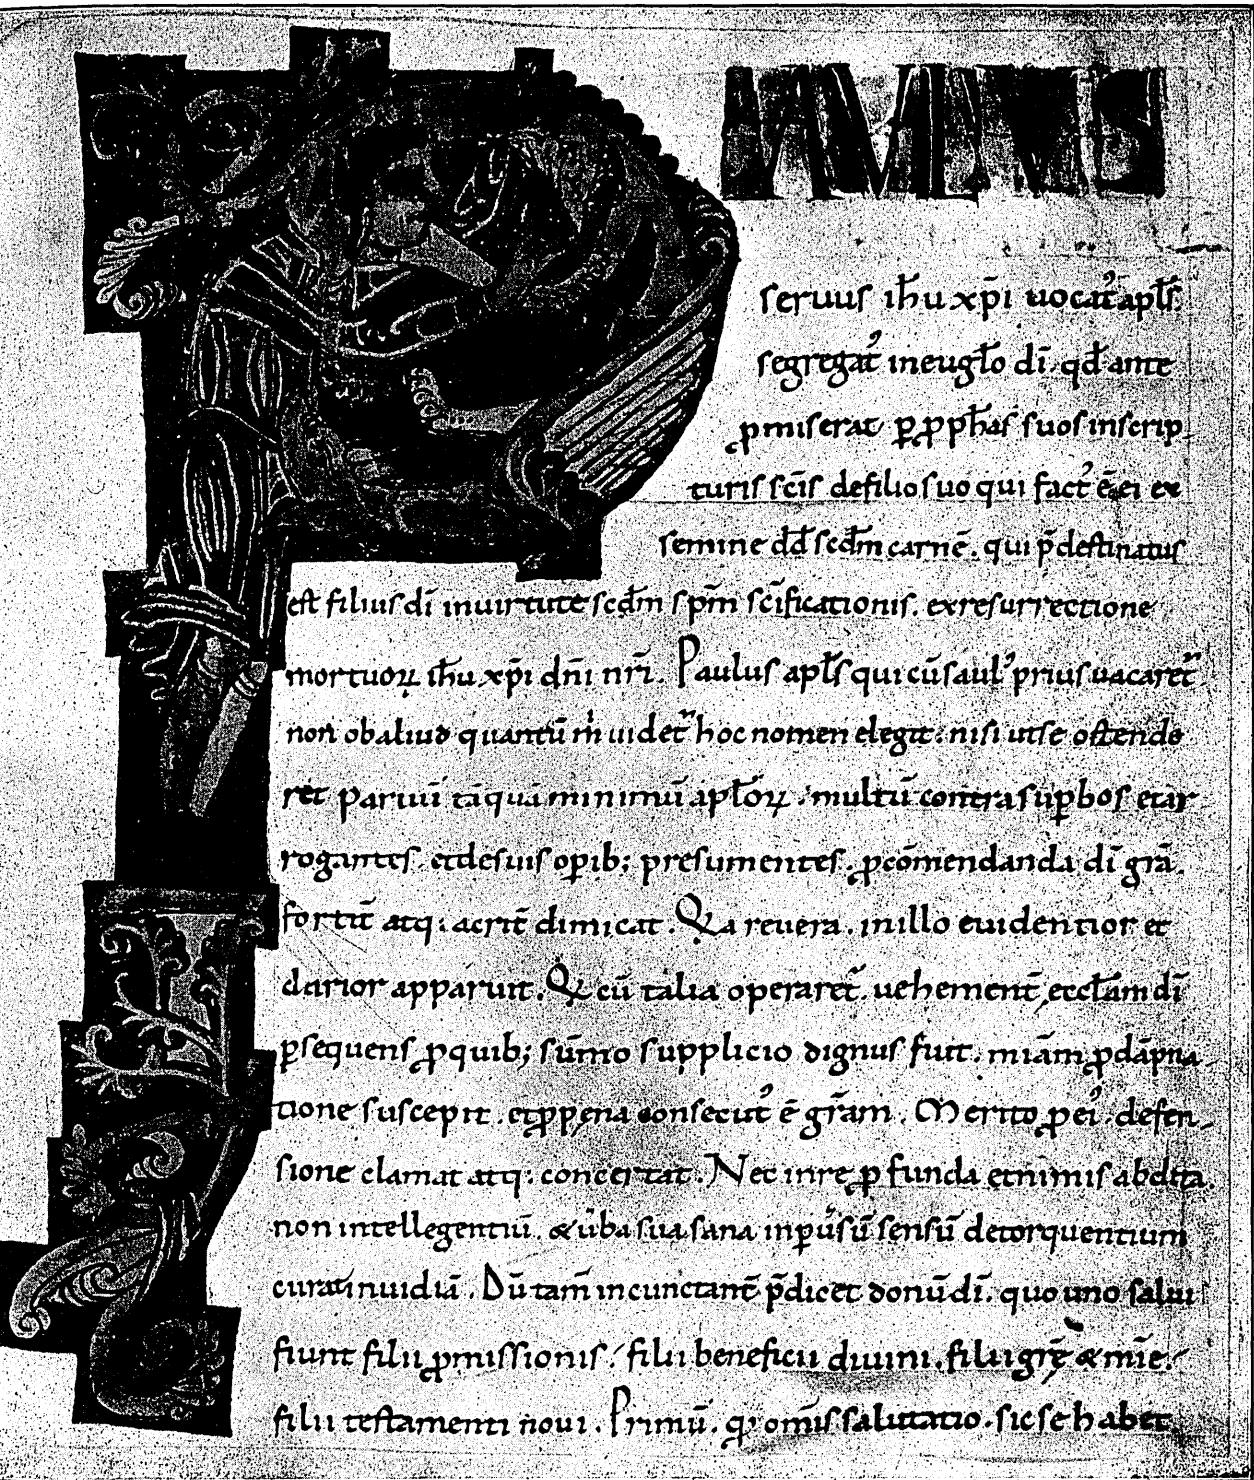 PAVLVS
seruus ih̄u xp̄i uocat᾽ apl̄s.
segregat᾽ in eugl̄o dī. qd̄ ante
ꝓmiserat ꝑ ꝓph̄as suos in scrip
turis sc̄is de filio suo qui fact᾽ ē ei ex
semine dd̄ scdm̄ carnē. qui p̄destinatus
est filius dī in uirtute scdm̄ sp̄m sc̄ificationis. ex resurrectione
mortuoꝝ ih̄u xp̄i dn̄i nr̄i. Paulus apl̄s qui cū saul᾽ prius uocaret᾽
non ob aliud quantū m̍ uidet᾽ hoc nomen elegit: nisi ut se ostende
ret paruū tāquā minimū apl̄oꝝ. multū contra suꝑbos et ar
rogantes. et de suis oꝑib; presumentes. ꝓ cōmendanda dī grā.
fortit̄ atq: acrit̄ dimicat. Q̄a reuera. in illo euidentior et
clarior apparuit. Q̄ cū talia operaret᾽. uehement̄ eccl̄am dī
ꝑsequens ꝓ quib; sūmo supplicio dignus fuit. miā̄m ꝓ dāpna
tione suscepit. et ꝓ pęna consecut᾽ ē gr̄am. Merito ꝓ ei᾽ defen
sione clamat atq: concertat. Nec in rę ꝓfunda et nimis abdita
non intellegentiū. & ūba sua sana in ꝑuersū sensū detorquentium
curat inuidiā. Dū tam̄ incunctant̄ p̄dicet donū dī. quo uno salui
fiunt filii ꝓmissionis. filii beneficii diuini. filii grę̄ & mīe.
filii testamenti noui. Primū. q̄ om̄is salutatio. sic se habet